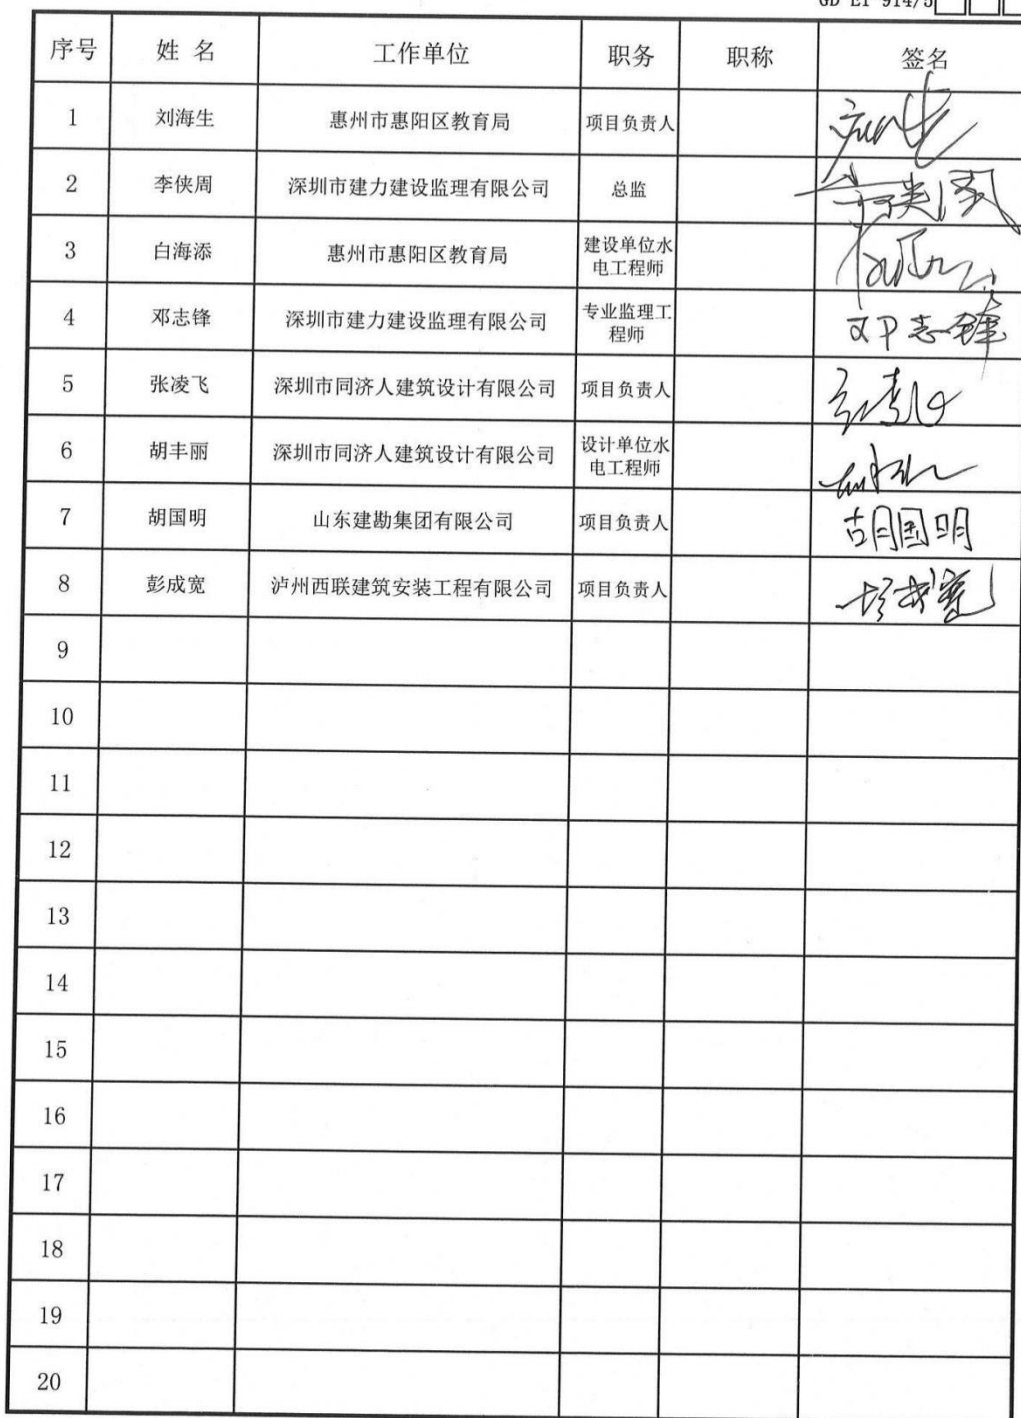 GD-E1-914/5
序号 姓 名 工作单位 职务 职称 签名
1 刘海生 惠州市惠阳区教育局 项目负责人
2 李侠周 深圳市建力建设监理有限公司 总监
3 白海添 惠州市惠阳区教育局 建设单位水
电工程师
4 邓志锋 深圳市建力建设监理有限公司 专业监理工
程师 邓志锋
5 张凌飞 深圳市同济人建筑设计有限公司 项目负责人
6 胡丰丽 深圳市同济人建筑设计有限公司 设计单位水
电工程师
7 胡国明 山东建勘集团有限公司 项目负责人 胡国明
8 彭成宽 泸州西联建筑安装工程有限公司 项目负责人
9
10
11
12
13
14
15
16
17
18
19
20